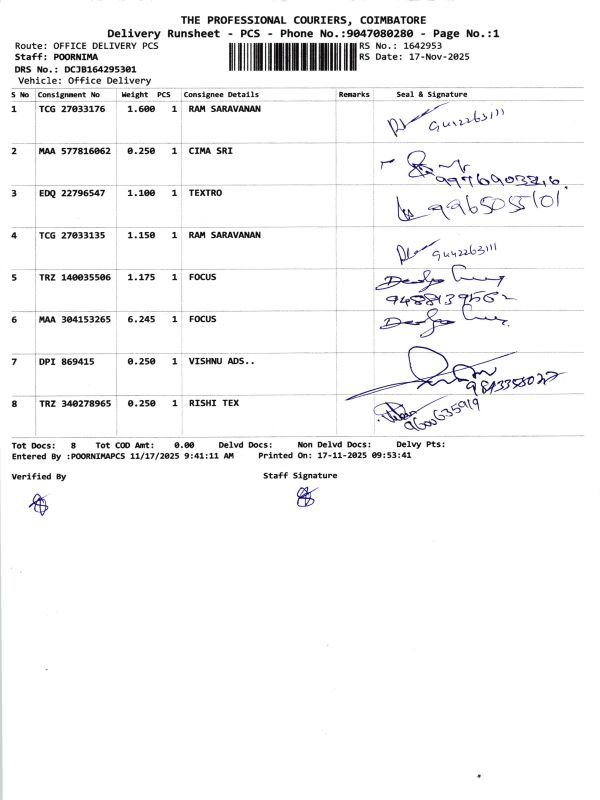 THE PROFESSIONAL COURIERS, COIMBATORE
Delivery Runsheet - PCS - Phone No.:9047080280 - Page No.:1
Route: OFFICE DELIVERY PCS RS No.: 1642953
Staff: POORNIMA RS Date: 17-Nov-2025
DRS No.: DCJB164295301
Vehicle: Office Delivery
S No Consignment No Weight PCS Consignee Details Remarks Seal & Signature
1 TCG 27033176 1.600 1 RAM SARAVANAN
2 MAA 577816062 0.250 1 CIMA SRI
3 EDQ 22796547 1.100 1 TEXTRO 9965055101
4 TCG 27033135 1.150 1 RAM SARAVANAN
5 TRZ 140035506 1.175 1 FOCUS
6 MAA 304153265 6.245 1 FOCUS
7 DPI 869415 0.250 1 VISHNU ADS..
8 TRZ 340278965 0.250 1 RISHI TEX
9600635919
Tot Docs: 8 Tot COD Amt: 0.00 Delvd Docs: Non Delvd Docs: Delvy Pts:
Entered By :POORNIMAPCS 11/17/2025 9:41:11 AM Printed On: 17-11-2025 09:53:41
Verified By Staff Signature